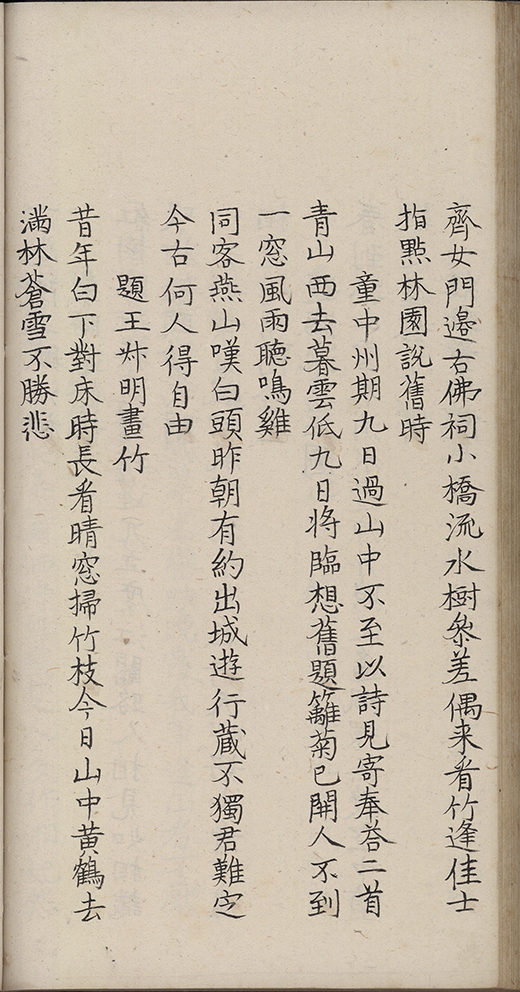 齊女門邊古佛祠小橋流水樹參差偶来看竹逢佳士
指點林園說舊時
童中州期九日過山中不至以詩見寄奉答二首
青山西去暮雲低九日将臨想舊題籬菊已開人不到
一窓風雨聽鳴雞
同客燕山嘆白頭昨朝有約出城遊行蔵不獨君難定
今古何人得自由
題王叔明畫竹
昔年白下對床時長看晴窓掃竹枝今日山中黄鶴去
満林蒼雪不勝悲